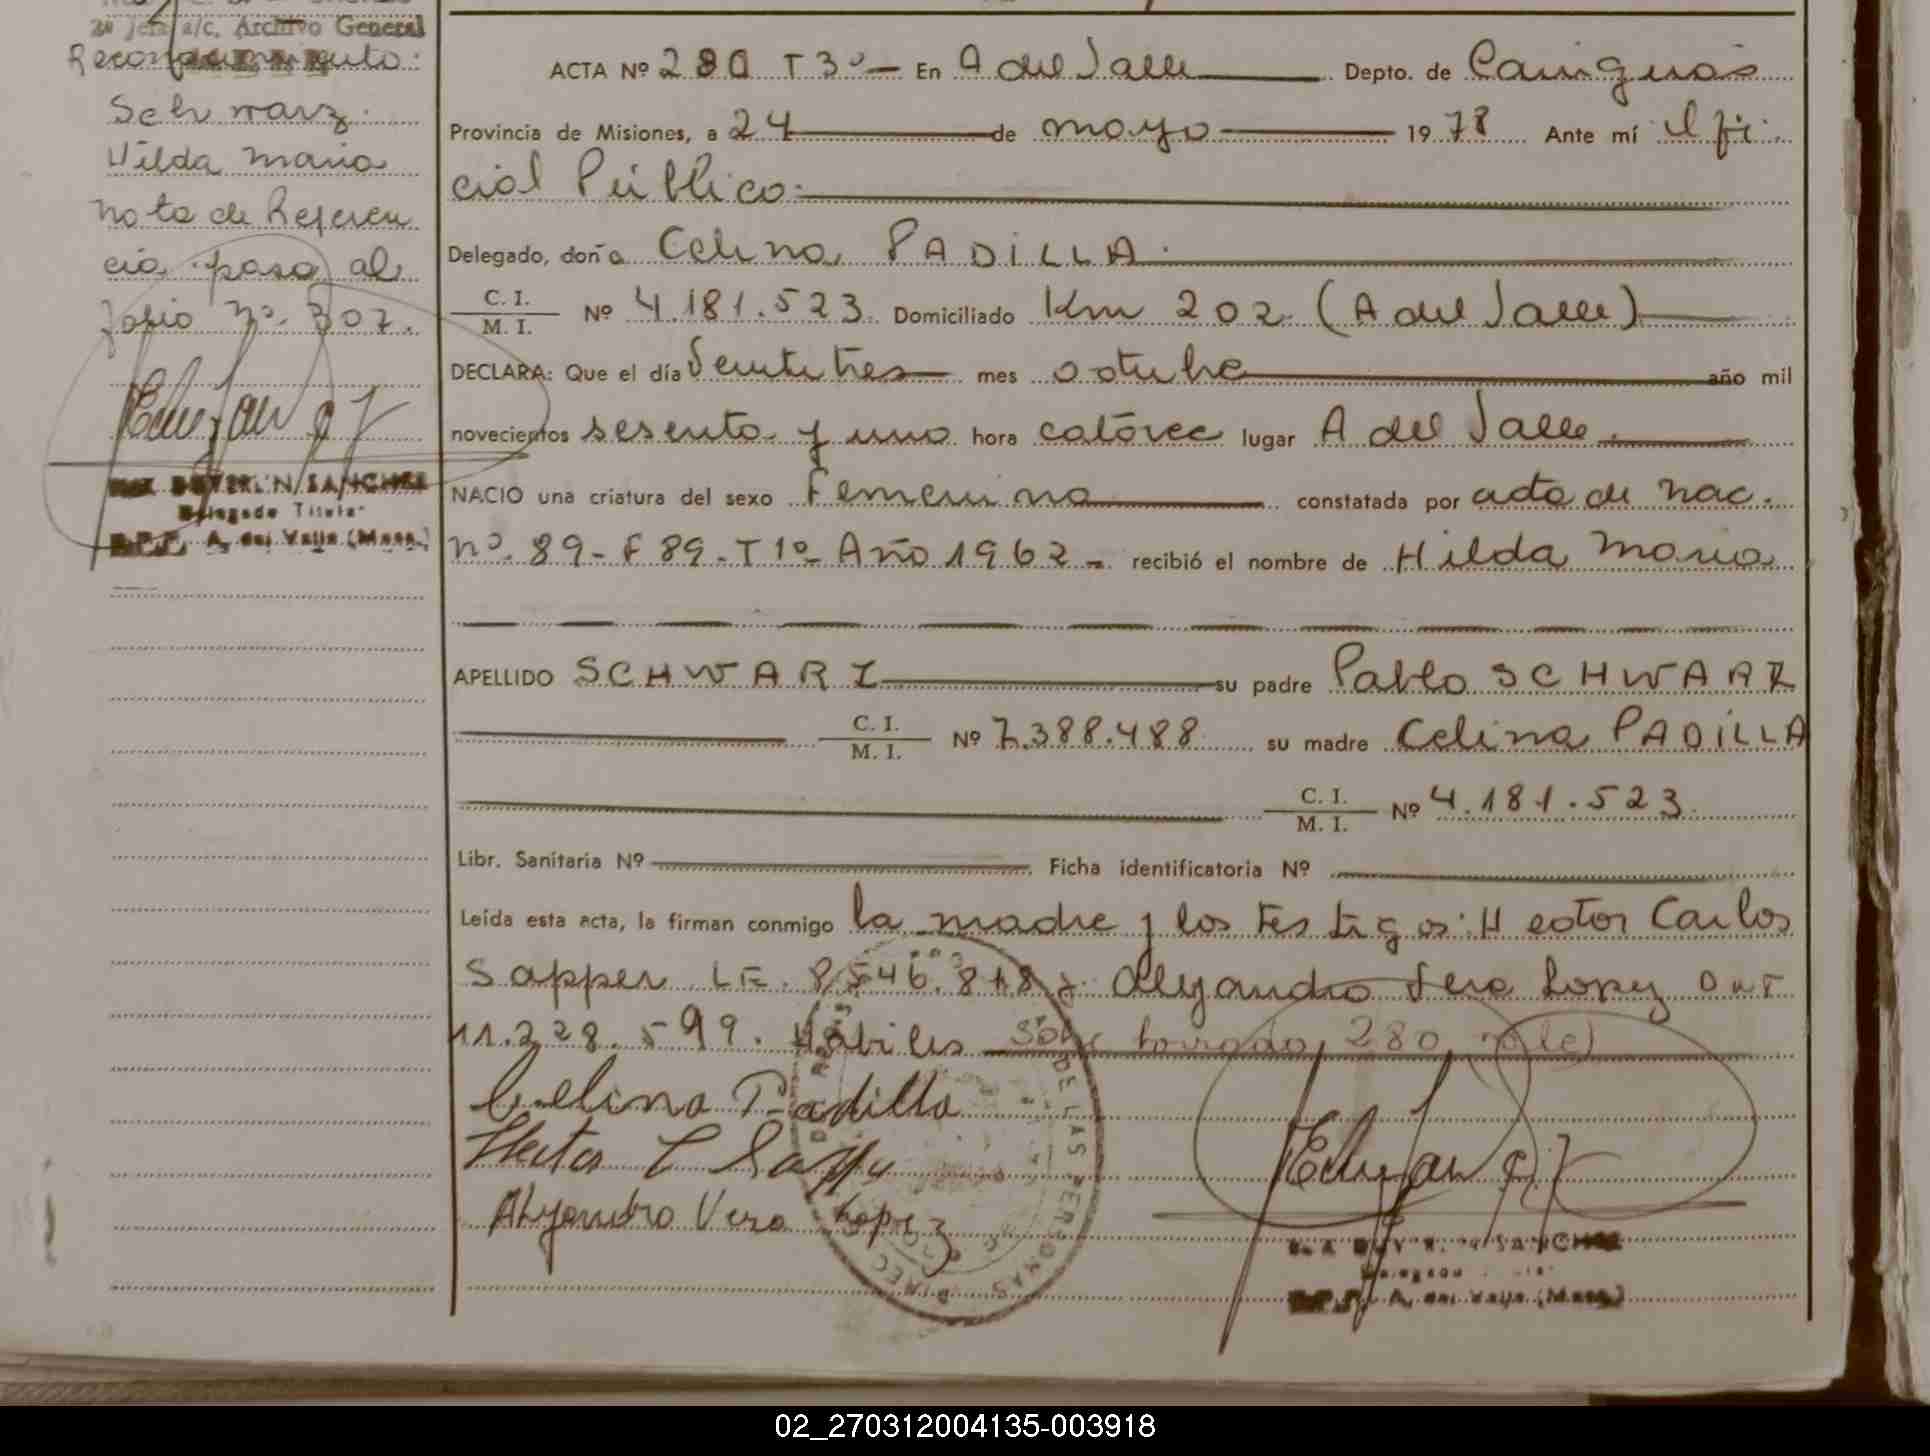 2º Jefe a/c. Archivo General
Reconocimiento:
Schwarz
Hilda Maria
Nota de Referen
cia paso al
folio Nº 307.
BEYERLIN SANCHEZ
Delegado Titular
A. del Valle (Mnes.)
ACTA Nº 280 T 3º — En A del Valle Depto. de Cainguás
Provincia de Misiones, a 24 de mayo 1978 Ante mí el ofi
cial Público.
Delegado, doña Celina PADILLA.
C. I. / M. I. Nº 4.181.523 Domiciliado Km 202 (A del Valle)
DECLARA: Que el día Veintitres mes octubre año mil
novecientos sesenta y uno hora catórce lugar A del Valle.
NACIO una criatura del sexo Femenino constatada por acta de nac.
nº 89 - F 89 - T 1º - Año 1962 - recibió el nombre de Hilda Maria
APELLIDO SCHWARZ su padre Pablo SCHWARZ
C. I. / M. I. Nº 7.388.488 su madre Celina PADILLA
C. I. / M. I. Nº 4.181.523
Libr. Sanitaria Nº Ficha identificatoria Nº
Leída esta acta, la firman conmigo la madre y los testigos: Hector Carlos
Sapper LE. 8.546.818 y Alejandro Vera Lopez DNI
11.228.599. Hábiles Sobre borrado, 280, vale)
Celina Padilla
Hector C Sapper
Alejandro Vera Lopez
DE LAS PERSONAS
SANCHEZ
A. del Valle (Mnes.)
02_270312004135-003918